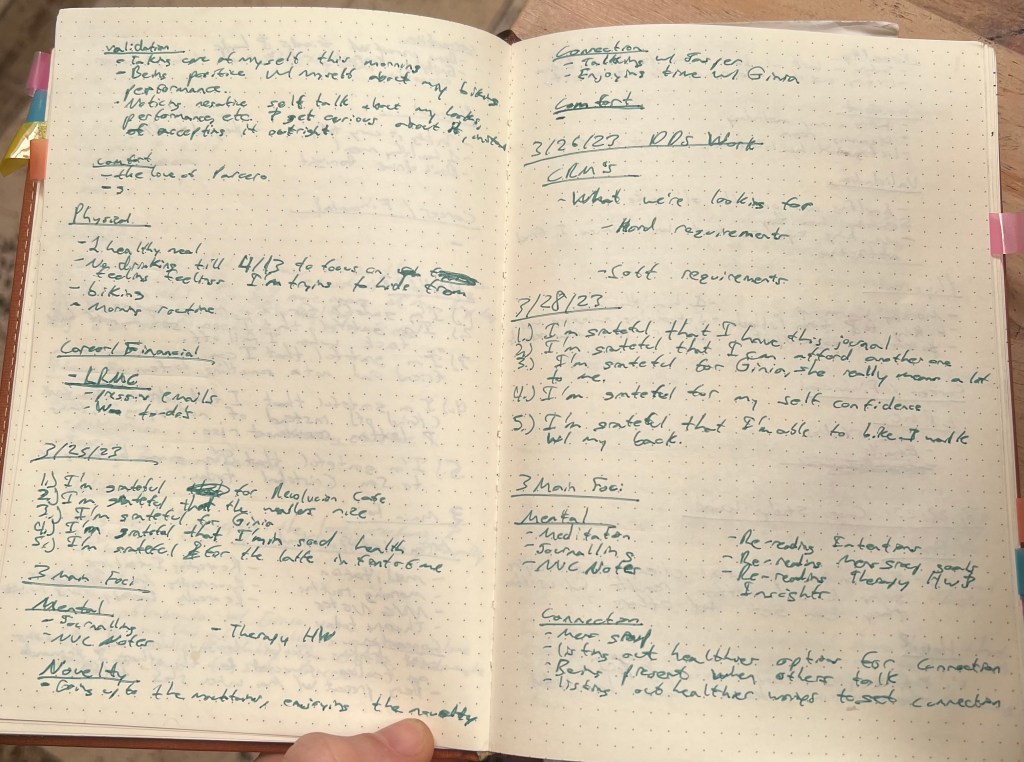 Validation
- Taking care of myself this morning
- Being positive w/ myself about my biking
performance.
- Noticing negative self talk about my looks,
performance, etc. I get curious about it, instead
of accepting it outright.
Comfort
- the love of Parcero
- g.
Physical
- 1 healthy meal
- No drinking till 4/13 to focus on
feeling feelings I'm trying to hide from
- biking
- Morning routine
Career/Financial
- LRMC
- emails
- to-do's
3/25/23
1.) I'm grateful for Revolucion Cafe
2.) I'm grateful that the weathers nice
3.) I'm grateful for Ginia
4.) I'm grateful that I'm in good health
5.) I'm grateful for the latte in front of me
3 Main Foci
Mental
- Journalling
- NVC Notes
- Therapy HW
Novelty
- Going up to the mountains, enjoying the novelty
Connection
- Talking w/ Jasper
- Enjoying time w/ Ginia
Comfort
-
3/26/23 DDs Work
CRM's
- What we're looking for
- Hard requirements
- Soft requirements
3/28/23
1.) I'm grateful that I have this journal
2.) I'm grateful that I can afford another one
3.) I'm grateful for Ginia, she really means a lot
to me.
4.) I'm grateful for my self confidence
5.) I'm grateful that I'm able to bike & walk
w/ my back.
3 Main Foci
Mental
- Meditation
- Journalling
- NVC Notes
- Re-reading Intentions
- Re-reading goals
- Re-reading Therapy HW &
Insights
Connection
- Mens group
- listing out healthier options for connection
- Being present when others talk
- listing out healthier ways to get connection